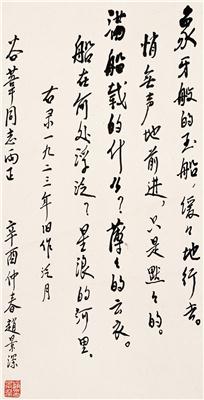 象牙般的玉船，缓々地行去。
悄无声地前进，只是点々的。
满船载的什么？薄々的云衣。
船在何处浮泛？星浪的河里。
右录一九二三年旧作泛月
谷苇同志两正
辛酉仲春赵景深